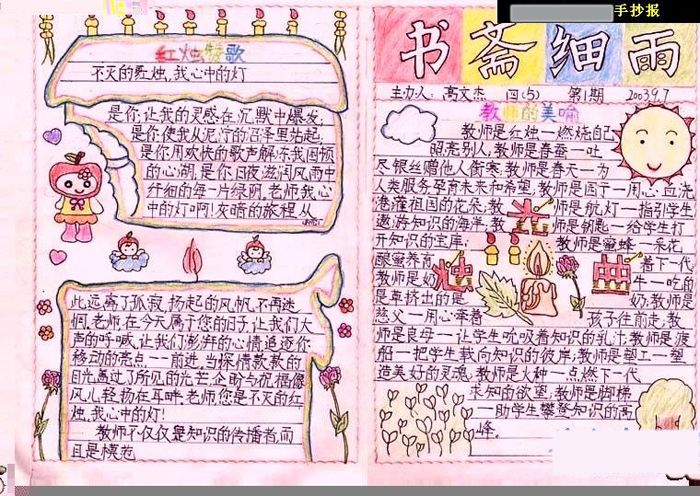 手抄报
红烛颂歌
不灭的红烛,我心中的灯
是你,让我的灵感在沉默中爆发;
是你,使我从泥泞的沼泽里站起;
是你,用欢快的歌声解冻我困顿
的心湖,是你,日夜滋润风雨中
纤细的每一片绿阴,老师,我心
中的灯啊!灰暗的旅程从
此远离了孤寂,扬起的风帆,不再迷
惘,老师,在今天属于您的日子,让我们大
声的呼喊,让我们澎湃的心情追逐你
移动的亮点--前进,当深情款款的
目光盖过了所见的光芒,企盼与祝福像
风儿轻扬在耳畔,老师,您是不灭的红
烛,我心中的灯!
教师不仅仅是知识的传播者,而
且是模范
书斋细雨
主办人:高文杰 四(5) 第1期 2003.9.7
教师的美喻
教师是红烛一燃烧自己
照亮别人;教师是春蚕一吐
尽银丝赠他人御寒;教师是春天一为
人类服务孕育未来和希望;教师是园丁一用心血浇
灌祖国的花朵;教师是航灯一指引学生
遨游知识的海洋;教师是钥匙一给学生打
开知识的宝库;教师是蜜蜂一采花
酿蜜养育着下一代
教师是奶牛一吃的
是草挤出的是奶;教师是
慈父一用心牵着孩子往前走;教
师是良母一让学生吮吸着知识的乳汁;教师是渡
船一把学生载向知识的彼岸;教师是塑工一塑
造美好的灵魂;教师是火种一点燃下一代
求知的欲望;教师是脚梯
一助学生攀登知识的高
峰。
光
烛
典